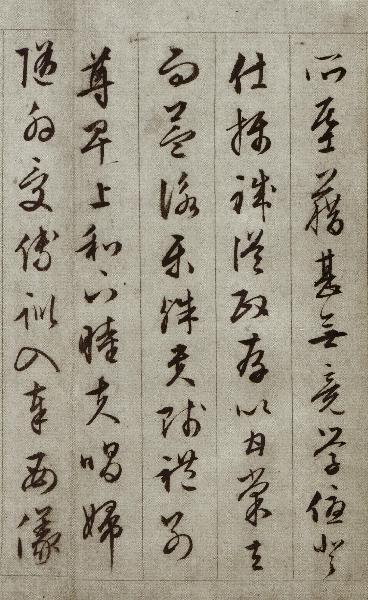 所基藉甚無竟學優登
仕攝職從政存以甘棠去
而益詠樂殊貴賤禮別
尊卑上和下睦夫唱婦
隨外受傅訓入奉母儀